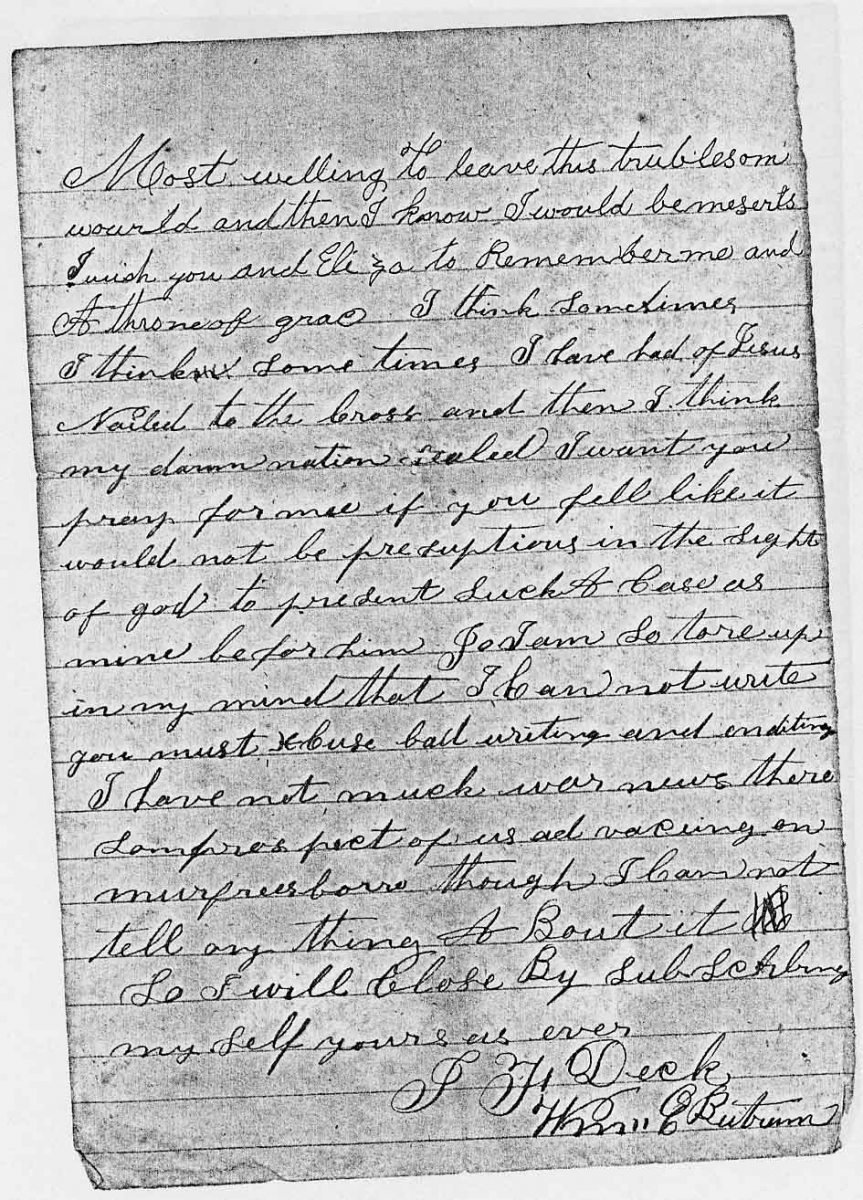 Most willing To leave this trublesom
wourld and then I know I would be meserls
I wish you and Eliza to Remember me and
A throne of grac I think somtimes
I think some times I have had of Jesus
Nailed to the Cross and then I think
my damnnation sealed I want you
pray for mee if you fell like it
would not be presuptious in the sight
of god to present such A Case as
mine befor him So I am so tore up
in my mind that I Can not write
you must xcuse bad writing and enditing
I have not much war news there
som prospect of us advacing on
murfreesborro though I Can not
tell any thing A Bout it
So I will Close By subscribing
my self yours as ever
J H Deck
E Butrum